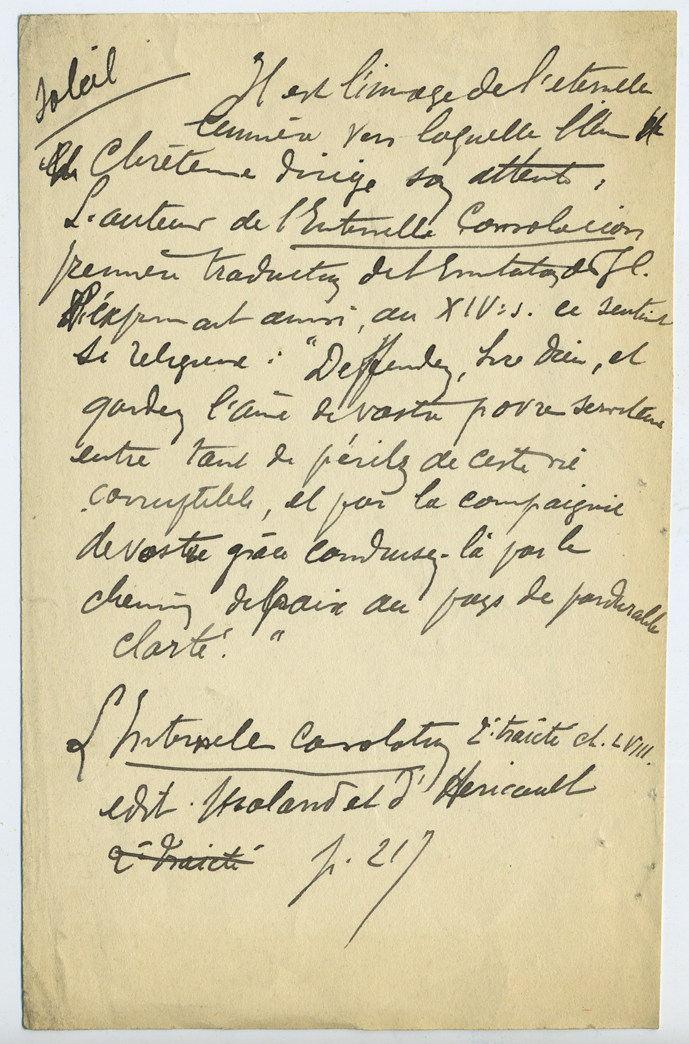 Soleil
Il est l'image de l'éternelle
lumière vers laquelle l'âme
Chrétienne dirige son attente.
L'auteur de l'Internelle Consolacion
première traduction de l'Imitation de J.C.
exprimait ainsi, au XIVe s. ce sentiment
si religieux : "Deffendez, Sire Dieu, et
gardez l'âme de vostre povre serviteur
entre tant de périlz de ceste vie
corruptible, et par la compaignie
de vostre grâce conduisez-là par le
chemin de paix au pays de pardurable
clarté."
L'Internelle Consolation 2e traicté ch. LVIII.
edit. Moland et d'Hericault
2e traicté p. 217